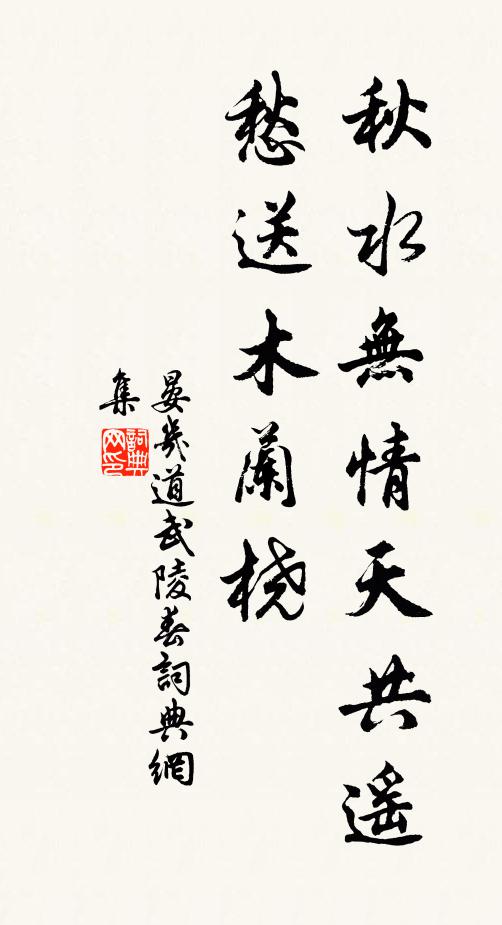 秋水無情天共遥
愁送木蘭桡
晏幾道武陵春詞典網
集
詞典网印